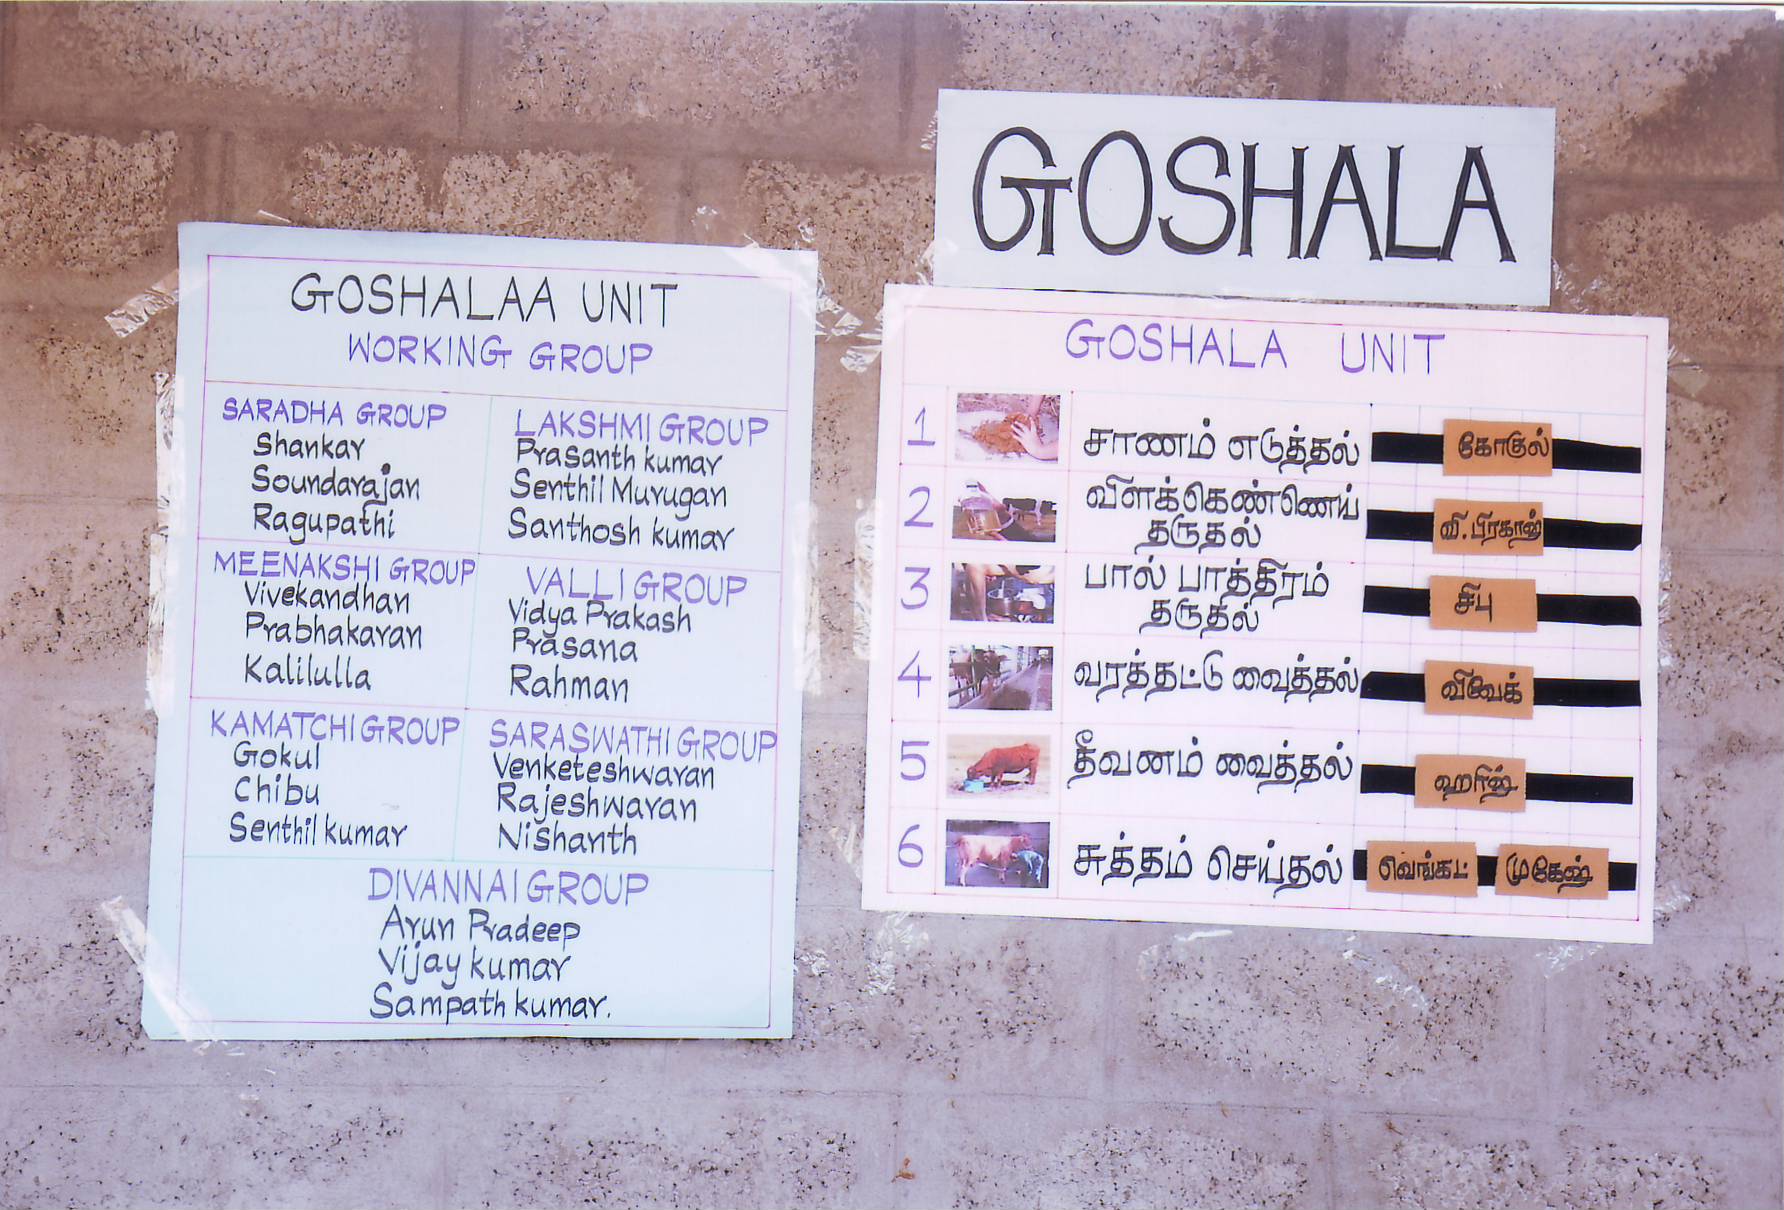 GOSHALAA UNIT
WORKING GROUP
SARADHA GROUP
Shankar
Soundarajan
Ragupathi
LAKSHMI GROUP
Prasanth kumar
Senthil Murugan
Santhosh kumar
MEENAKSHI GROUP
Vivekandhan
Prabhakaran
Kalilulla
VALLI GROUP
Vidya Prakash
Prasana
Rahman
KAMATCHI GROUP
Gokul
Chibu
Senthil kumar
SARASWATHI GROUP
Venketeshwaran
Rajeshwaran
Nishanth
DIVANNAI GROUP
Arun Pradeep
Vijay kumar
Sampath kumar.
GOSHALA
GOSHALA UNIT
1 சாணம் எடுத்தல் கோகுல்
2 விளக்கெண்ணெய்
தருதல் வி.பிரகாஷ்
3 பால் பாத்திரம்
தருதல் சிபு
4 வரத்தட்டு வைத்தல் விவேக்
5 தீவணம் வைத்தல் ஹரிஷ்
6 சுத்தம் செய்தல் வெங்கட் முகேஷ்